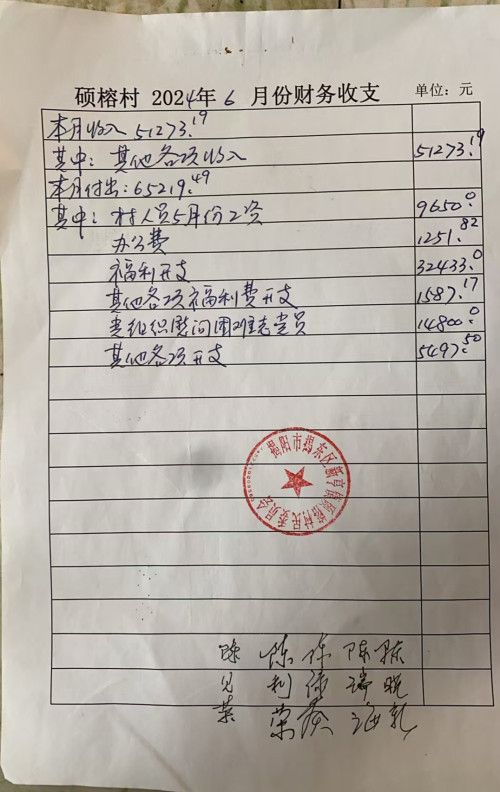 硕榕村 2024年 6 月份财务收支 单位：元
本月收入51273.19
其中：其他各项收入 51273.19
本月付出：65219.49
其中：村人员5月份工资 9650.0
办公费 1251.82
福利开支 32433.0
其他各项福利费开支 1587.17
党组织慰问困难党员 14800.0
其他各项开支 5497.50
揭阳市揭东区新亨镇硕榕村民委员会
陈 陈 陈 陈 陈
见 利 瑞 晓
荣 荣